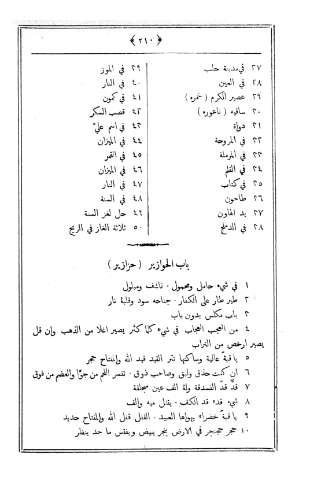 ﴿ ٢١٠ ﴾
٢٧ في مدينة حلب
٢٨ في العين
٢٩ عصير الكرم ( خمره )
٣٠ ساقيه ( ناعوره )
٣١ دواة
٣٢ في المروحة
٣٣ في المرملة
٣٤ في القلم
٣٥ في كتاب
٣٦ طاحون
٣٧ يد الهاون
٣٨ في الدملج
٣٩ في الموز
٤٠ في النار
٤١ في كمون
٤٢ قصب السكر
٤٣ في اسم علي
٤٤ في الميزان
٤٥ في القبر
٤٦ في الميزان
٤٧ في النار
٤٨ في السنة
٤٩ حل لغز السنة
٥٠ ثلاثة الغاز في الريح
باب الحوازير ( حزازير )
١ في شيء حامل ومحمول . ناشف ومبلول
٢ طير طار على الكفار . جناحه سود وقلبة نار
٣ باب مكلس بدون باب
٤ من العجب العجاب في شيء كما كثر يصير اغلا من الذهب وإن قل
يصير ارخص من التراب
٥ يا قبة عالية وساكنها نتر القيد قيد الله والمفتاح حجر
٦ ان كنت حذق ولبق وصاحب ذوق . تفسر اللحم من جوّا والعضم من فوق
٧ قدّ قدّ الفسدقة ولة الف عين محلقة
٨ شيء قده قد الكف . يقتل ميه والف
٩ يا قبة خضراء يهواها العبيد . القفل قفل الله والمفتاح حديد
١٠ حجر حجرجر في الارض بنجر يبيض ويفقس ما حد ينظر